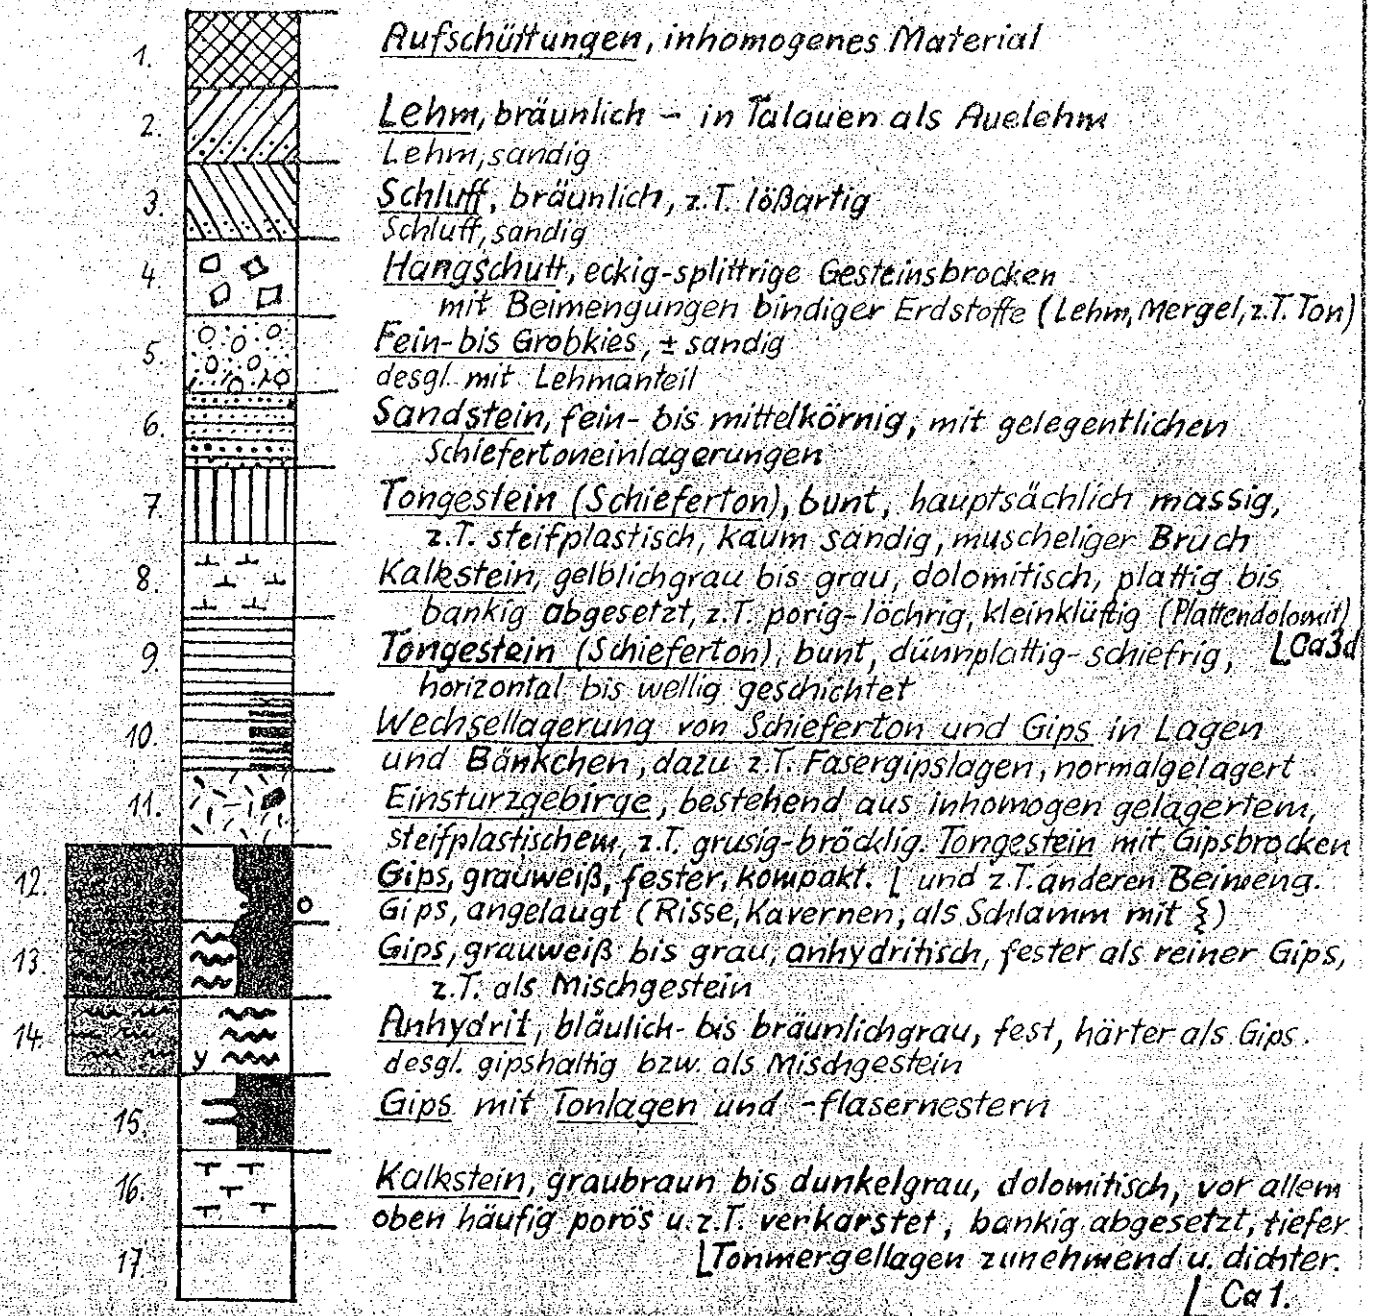 1. Aufschüttungen, inhomogenes Material
2. Lehm, bräunlich – in Talauen als Auelehm
Lehm, sandig
3. Schluff, bräunlich, z.T. lößartig
Schluff, sandig
4. Hangschutt, eckig-splittrige Gesteinsbrocken
mit Beimengungen bindiger Erdstoffe (Lehm, Mergel, z.T. Ton)
5. Fein- bis Grobkies, ± sandig
desgl. mit Lehmanteil
6. Sandstein, fein- bis mittelkörnig, mit gelegentlichen
Schiefertoneinlagerungen
7. Tongestein (Schieferton), bunt, hauptsächlich massig,
z.T. steifplastisch, kaum sandig, muscheliger Bruch
8. Kalkstein, gelblichgrau bis grau, dolomitisch, plattig bis
bankig abgesetzt, z.T. porig-löchrig, kleinklüftig (Plattendolomit)
⌊Ca3d
9. Tongestein (Schieferton), bunt, dünnplattig-schiefrig,
horizontal bis wellig geschichtet
10. Wechsellagerung von Schieferton und Gips in Lagen
und Bänkchen, dazu z.T. Fasergipslagen, normalgelagert
11. Einsturzgebirge, bestehend aus inhomogen gelagertem,
steifplastischem, z.T. grusig-bröcklig. Tongestein mit Gipsbrocken
⌊ und z.T. anderen Beimeng.
12. Gips, grauweiß, fester, kompakt.
Gips, angelaugt (Risse, Kavernen, als Schlamm mit ξ)
13. Gips, grauweiß bis grau, anhydritisch, fester als reiner Gips,
z.T. als Mischgestein
14. Anhydrit, bläulich- bis bräunlichgrau, fest, härter als Gips.
y desgl. gipshaltig bzw. als Mischgestein
15. Gips mit Tonlagen und -flasernestern
16. Kalkstein, graubraun bis dunkelgrau, dolomitisch, vor allem
oben häufig porös u. z.T. verkarstet, bankig abgesetzt, tiefer
⌊Tonmergellagen zunehmend u. dichter.
17. ⌊ Ca1.